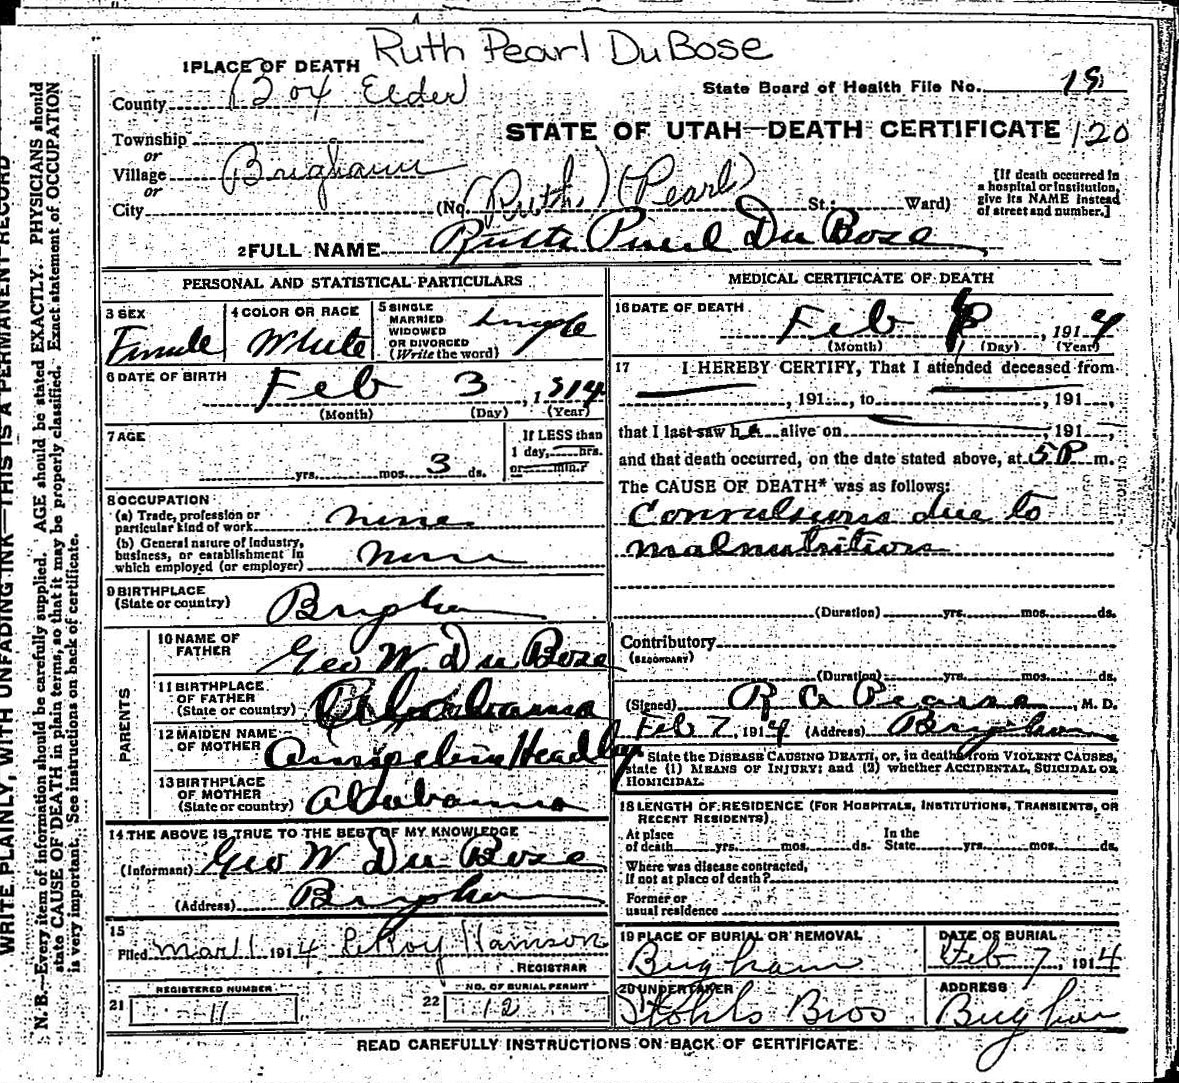 Ruth Pearl DuBose
1 PLACE OF DEATH
County Box Elder
State Board of Health File No. 19
Township
or
STATE OF UTAH—DEATH CERTIFICATE 120
Village Brigham
or
City (No. (Ruth) (Pearl) St.; Ward)
[If death occurred in
a hospital or institution,
give its NAME instead
of street and number.]
2 FULL NAME Ruth Pearl Du Bose
PERSONAL AND STATISTICAL PARTICULARS
3 SEX
Female
4 COLOR OR RACE
White
5 SINGLE
MARRIED
WIDOWED
OR DIVORCED
(Write the word)
Single
6 DATE OF BIRTH
Feb 3, 1914
(Month) (Day) (Year)
7 AGE
yrs. mos. 3 ds.
If LESS than
1 day, hrs.
or min.?
8 OCCUPATION
(a) Trade, profession or
particular kind of work none
(b) General nature of industry,
business, or establishment in
which employed (or employer) none
9 BIRTHPLACE
(State or country) Brigham
PARENTS
10 NAME OF
FATHER Geo W. Du Bose
11 BIRTHPLACE
OF FATHER
(State or country) Alabama
12 MAIDEN NAME
OF MOTHER Headley
13 BIRTHPLACE
OF MOTHER
(State or country) Alabama
14 THE ABOVE IS TRUE TO THE BEST OF MY KNOWLEDGE
(Informant) Geo W Du Bose
(Address) Brigham
15
Filed Mar 11 1914 LeRoy
REGISTRAR
REGISTERED NUMBER
21 11
NO. OF BURIAL PERMIT
22 12
MEDICAL CERTIFICATE OF DEATH
16 DATE OF DEATH
Feb , 1914
(Month) (Day) (Year)
17 I HEREBY CERTIFY, That I attended deceased from
, 191 , to , 191 ,
that I last saw h alive on , 191 ,
and that death occurred, on the date stated above, at 5 P m.
The CAUSE OF DEATH* was as follows:
Convulsions due to
malnutrition
(Duration) yrs. mos. ds.
Contributory
(SECONDARY)
(Duration) yrs. mos. ds.
(Signed) R A Pearse, M. D.
Feb 7, 1914 (Address) Brigham
State the DISEASE CAUSING DEATH, or, in deaths from VIOLENT CAUSES,
state (1) MEANS OF INJURY; and (2) whether ACCIDENTAL, SUICIDAL OR
HOMICIDAL.
18 LENGTH OF RESIDENCE (FOR HOSPITALS, INSTITUTIONS, TRANSIENTS, OR
RECENT RESIDENTS)
At place
of death yrs. mos. ds.
In the
State yrs. mos. ds.
Where was disease contracted,
If not at place of death?
Former or
usual residence
19 PLACE OF BURIAL OR REMOVAL
Brigham
DATE OF BURIAL
Feb 7, 1914
20 UNDERTAKER
Stohls Bros
ADDRESS
Brigham
READ CAREFULLY INSTRUCTIONS ON BACK OF CERTIFICATE
WRITE PLAINLY, WITH UNFADING INK—THIS IS A PERMANENT RECORD
N. B.—Every item of information should be carefully supplied. AGE should be stated EXACTLY. PHYSICIANS should
state CAUSE OF DEATH in plain terms, so that it may be properly classified. Exact statement of OCCUPATION
is very important. See instructions on back of certificate.